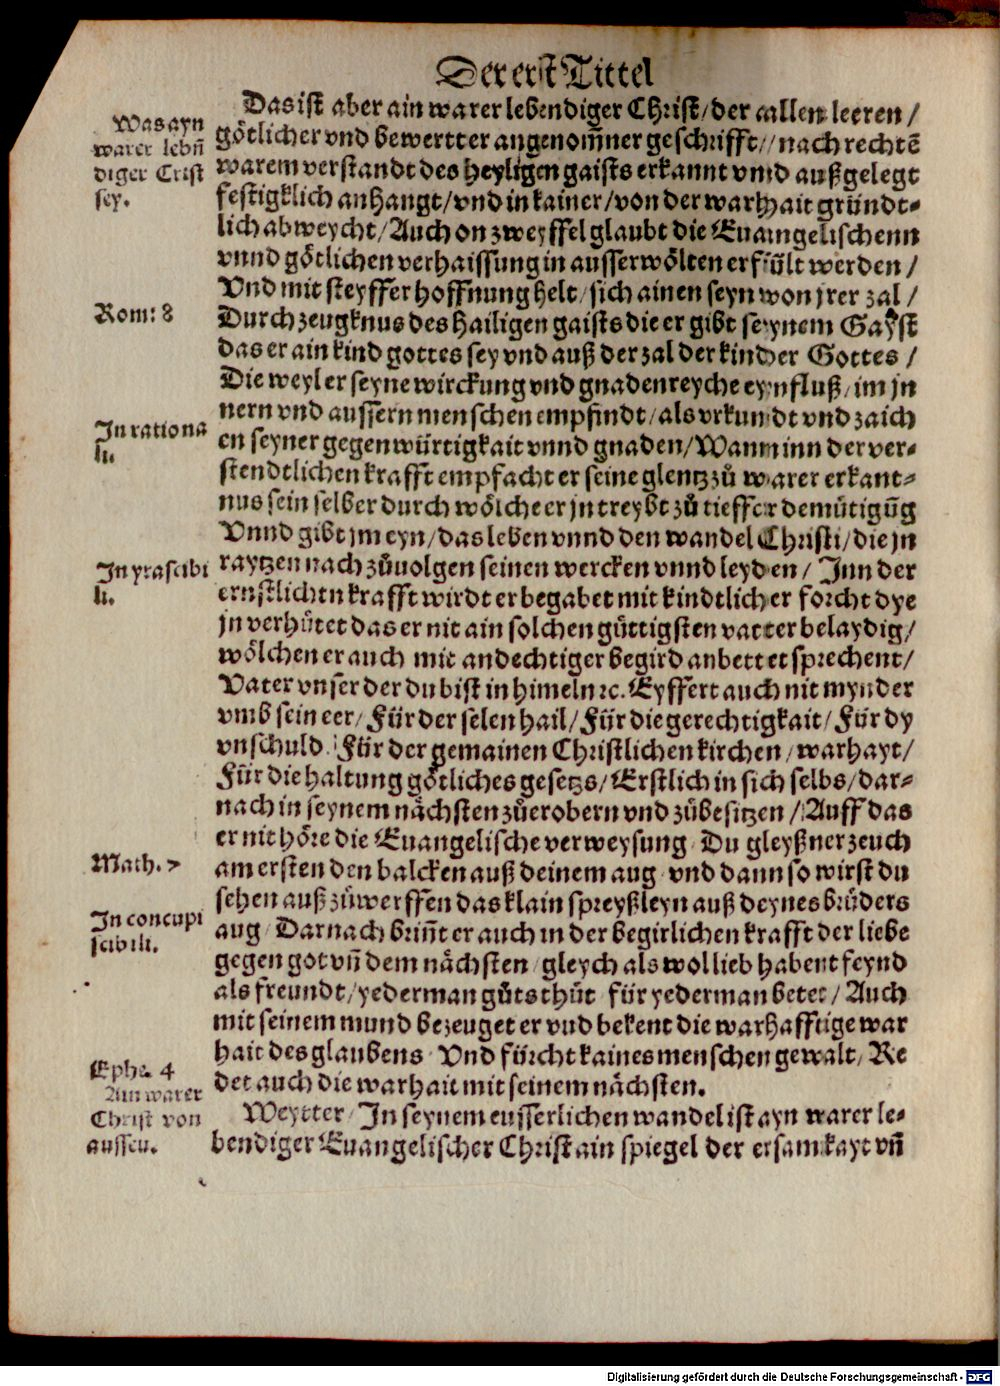 Der erst Tittel
Was ayn
warer lebn̄
diger Crist
sey.
Das ist aber ain warer lebendiger Christ / der allen leeren /
götlicher vnd bewertter angenom̄ner geschrifft / nach rechtē
warem verstandt des heyligen gaists erkannt vnnd außgelegt
festigklich anhangt / vnd in kainer / von der warhait gründt-
lich abweycht / Auch on zweyffel glaubt die Euangelischenn
vnnd götlichen verhaissung in ausserwölten erfült werden /
Vnd mit steyffer hoffnung helt / sich ainen seyn won jrer zal /
Rom: 8
Durch zeugknus des hailigen gaists die er gibt seynem Gayst
das er ain kind gottes sey vnd auß der zal der kinder Gottes /
Die weyl er seyne wirckung vnd gnadenreyche eynfluß / im jn
nern vnd aussern menschen empfindt / als vrkundt vnd zaich
In rationa
li.
en seyner gegenwürtigkait vnnd gnaden / Wann inn der ver-
stendtlichen krafft empfacht er seine glentz zů warer erkant-
nus sein selber durch wölche er jn treybt zů tieffer demütigūg
Vnnd gibt jm eyn / das leben vnnd den wandel Christi / die jn
In yrascibi
li.
raytzen nach zůuolgen seinen wercken vnnd leyden / Inn der
ernstlichtn krafft wirdt er begabet mit kindtlicher forcht dye
jn verhütet das er nit ain solchen güttigsten vatter belaydig /
wölchen er auch mit andechtiger begird anbettet sprechent /
Vater vnser der du bist in himeln ꝛc. Eyffert auch nit mynder
vmb sein eer / Für der selen hail / Für die gerechtigkait / Für dy
vnschuld / Für der gemainen Christlichen kirchen / warhayt /
Für die haltung götliches gesetzs / Erstlich in sich selbs / dar-
nach in seynem nächsten zůerobern vnd zůbesitzen / Auff das
er nit höre die Euangelische verweysung / Du gleyßner zeuch
Math. 7
am ersten den balcken auß deinem aug / vnd dann so wirst du
sehen auß zůwerffen das klain spreyßleyn auß deynes brůders
In concupi
scibili.
aug / Darnach brin̄t er auch in der begirlichen krafft der liebe
gegen got vn̄ dem nächsten / gleych als wol lieb habent feynd
als freundt / yederman gůts thůt / für yederman betet / Auch
mit seinem mund bezeuget er vnd bekent die warhafftige war
hait des glaubens / Vnd fürcht kaines menschen gewalt / Re
Ephe. 4
det auch die warhait mit seinem nächsten.
Ain warer
Christ von
aussen.
Weytter / In seynem eusserlichen wandel ist ayn warer le-
bendiger Euangelischer Christ ain spiegel der ersamkayt vn̄
Digitalisierung gefördert durch die Deutsche Forschungsgemeinschaft - DFG